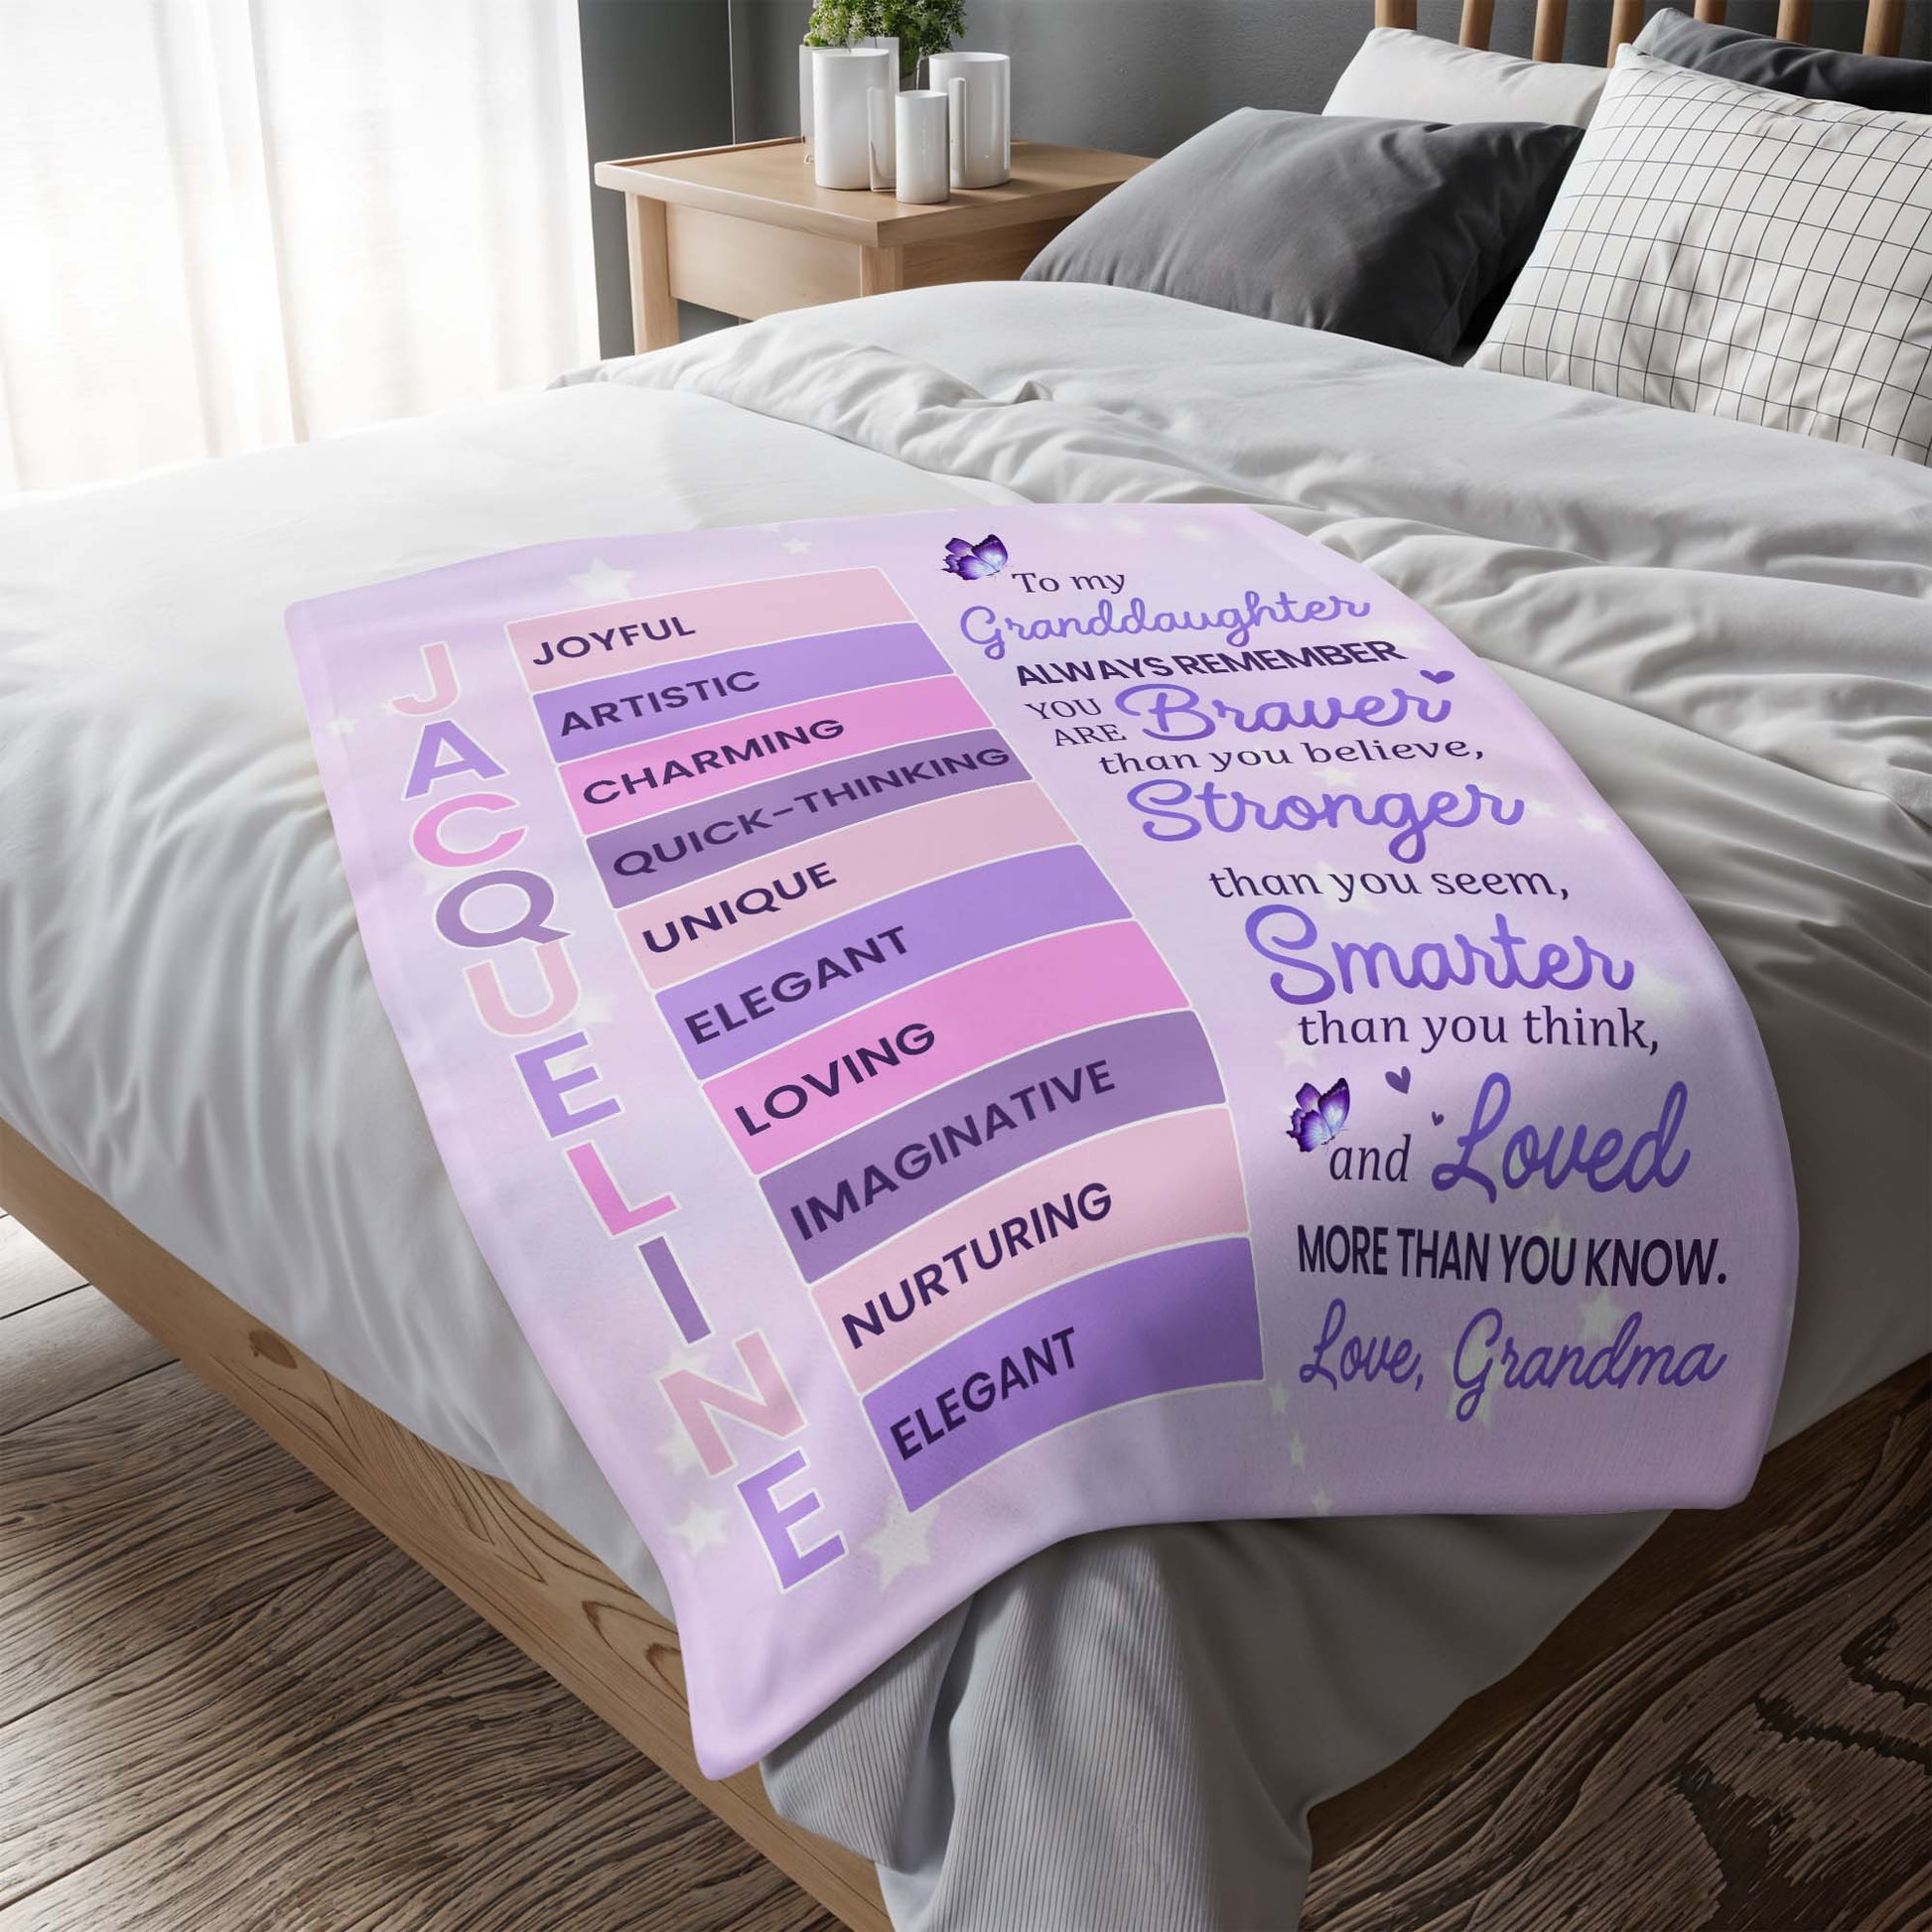 JACQUELINE
JOYFUL
ARTISTIC
CHARMING
QUICK-THINKING
UNIQUE
ELEGANT
LOVING
IMAGINATIVE
NURTURING
ELEGANT
To my
Granddaughter
ALWAYS REMEMBER
YOU ARE Braver
than you believe,
Stronger
than you seem,
Smarter
than you think,
and Loved
MORE THAN YOU KNOW.
Love, Grandma